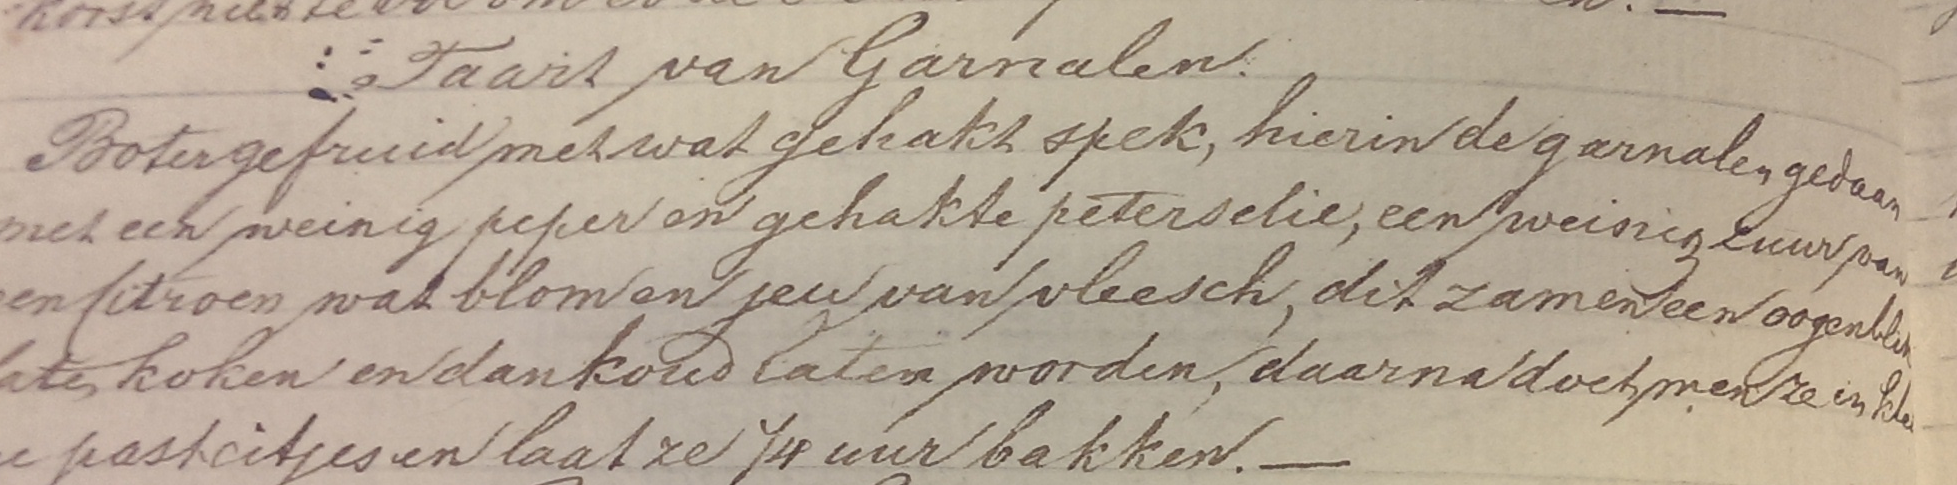 korst
Taart van Garnalen.
Boter gefruid met wat gehakt spek, hierin de garnalen gedaan
met een weinig peper en gehakte peterselie, een weinig zuur van
een citroen wat blom en jeu van vleesch, dit zamen een oogenblik
laten koken en dan koud laten worden, daarna doet men ze in klei
ne pasteitjes en laat ze 1/4 uur bakken. —